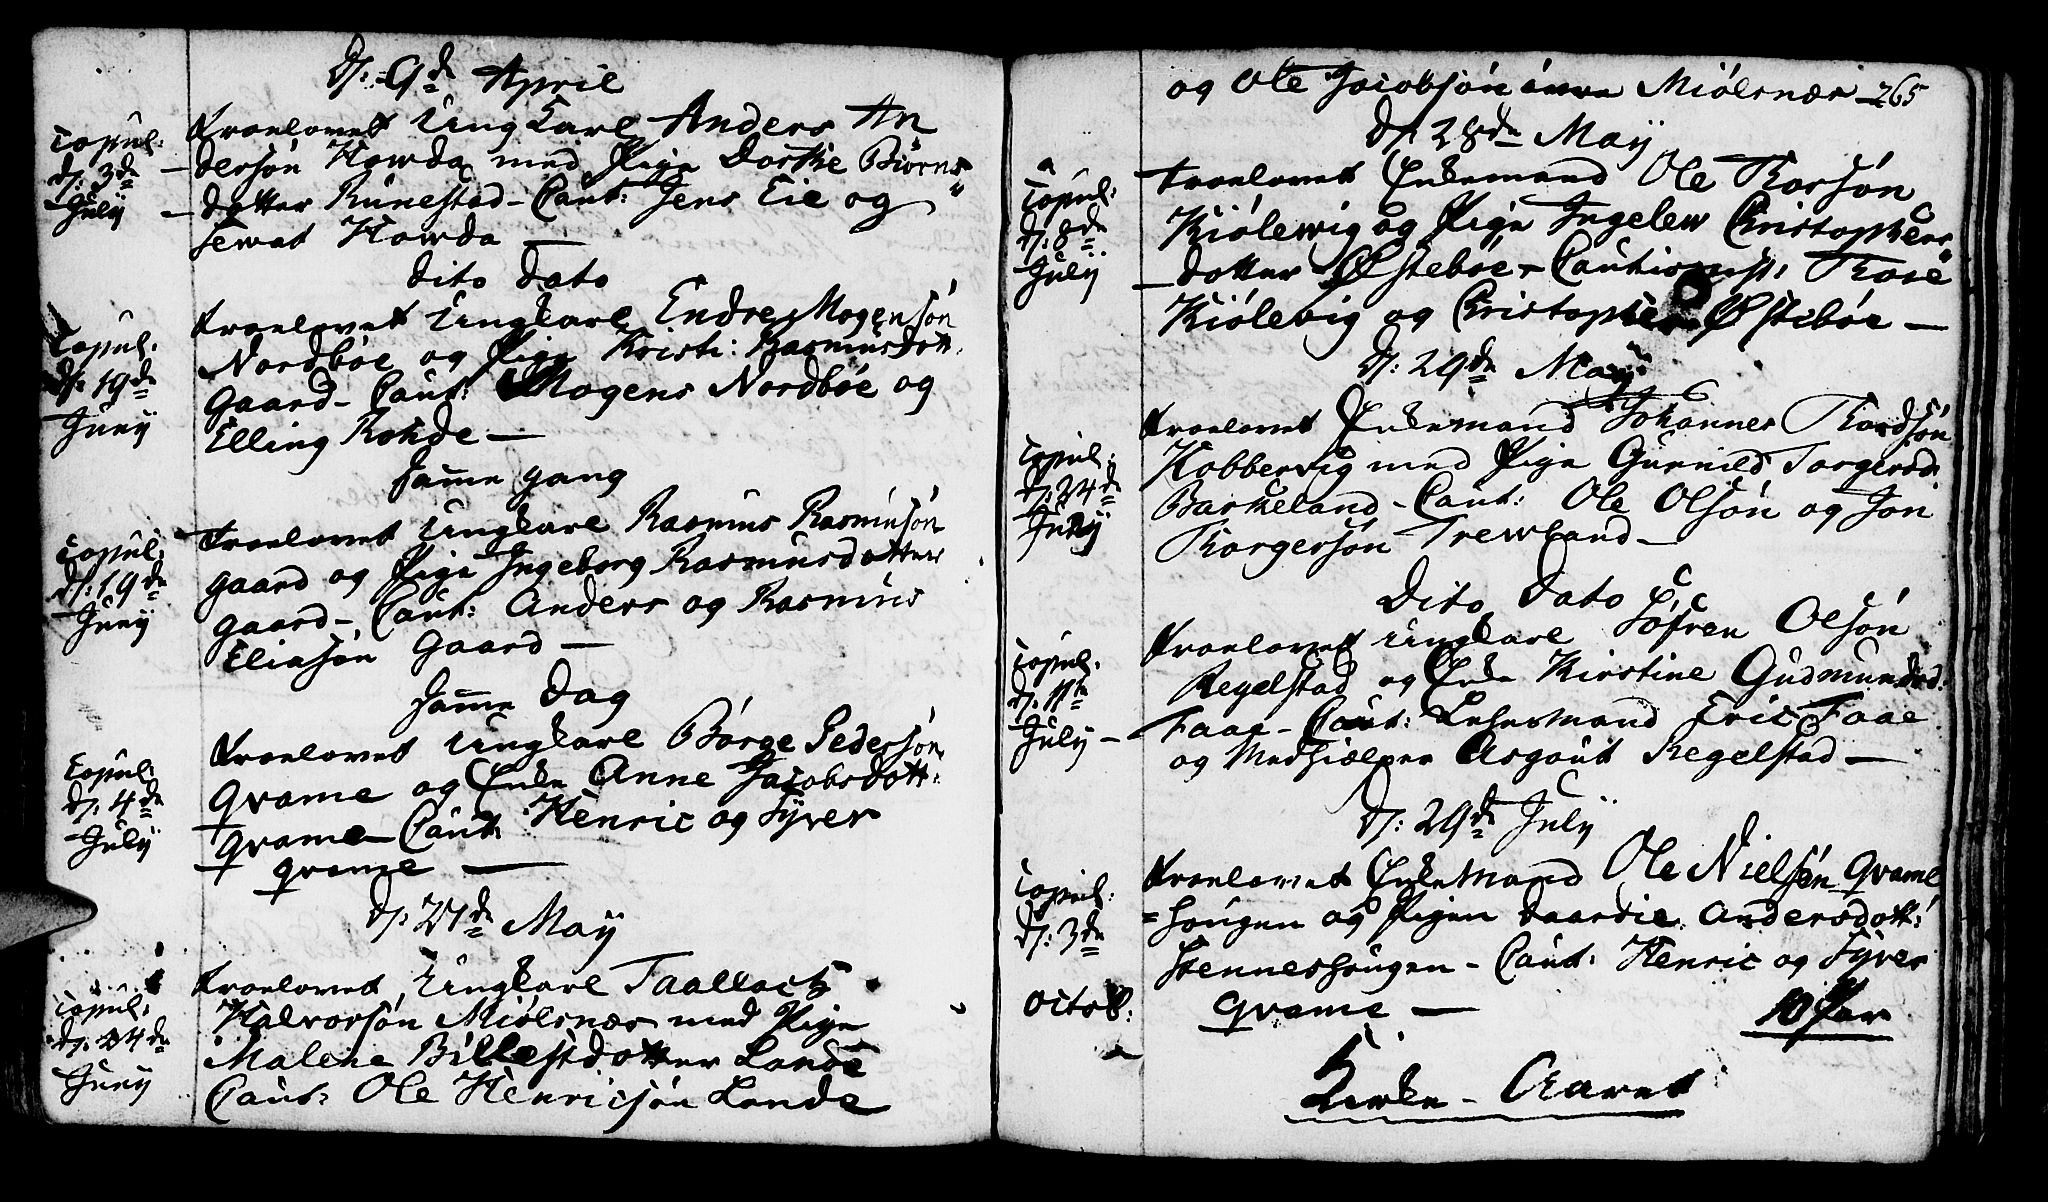 D: 9de April
Copul:
d: 3de
July
Troelovet Ungkarl Anders An
dersøn Howda med Pige Dorthe Biørns
dotter Runestad - Caut: Jens Eie og
Sewat Howda —
dito dato
Copul:
d: 19de
Juny
troelovet Ungkarl Endre Mogensøn
Nordbøe og Pige Kristi: Rasmusdott.
Gaard - Caut: Mogens Nordbøe og
Elling Rohde —
Samme gang
Copul:
d: 19de
Juny
Troelovet Ungkarl Rasmus Rasmusøn
gaard og Pige Ingeborg Rasmusdotter
gaard - Caut: Anders og Rasmus
Eliasøn Gaard —
Samme Dag
Copul:
d: 4de
July
troelovet Ungkarl Børge Pedersøn
Qvame og Enke Anne Jacobsdott:
qvame - Caut: Henric og Syver
qvame —
D: 27de May
Copul:
d: 24de
Juny
troelovet Ungkarl Taallack
Halvorsøn Miølsnæs med Pige
Malene Billestdotter Lande
Caut: Ole Henricsøn Lande
og Ole Jacobsøn Miølsnæs - 265
D: 28de May
Copul:
d: 8de
July
troelovet Enkemand Ole Thorsøn
Kiølewig og Pige Ingelew Christophers
dotter Østebøe - Cautionist: Thore
Kiølevig og Christopher Østebøe —
D: 29de May
Copul:
d: 24de
Juny
troelovet Enkemand Johannes Thordsøn
Kobbervig med Pige Gunnild Torgersd:
Barkeland - Caut: Ole Olsøn og Jon
Thorgersøn Trewland —
Dito Dato
Copul.
d: 11te
July —
troelovet Ungkarl Søfren Olsøn
Regelstad og Enke Kirstine Gudmundsd:
Faae - Caut: Lehnsmand Eric Faae
og Medhielper Asgout Regelstad —
D: 29de July
Copul:
d: 3de
Octob:
troelovet Enkemand Ole Nielsøn Qvame
hougen og Pigen Daardie Andersdott:
Stenneshougen - Caut: Henric og Syver
qvame — 10 Par
Kirke - Aaret